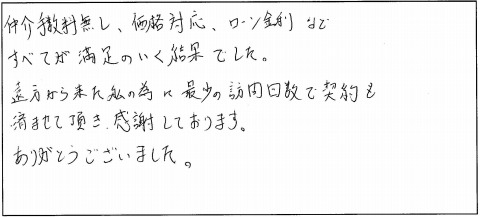 仲介手数料無し、価格対応、ローン金利 など
すべてが満足のいく結果でした。
遠方から来た私の為に最少の訪問日数で契約も
済ませて頂き、感謝しております。
ありがとうございました。